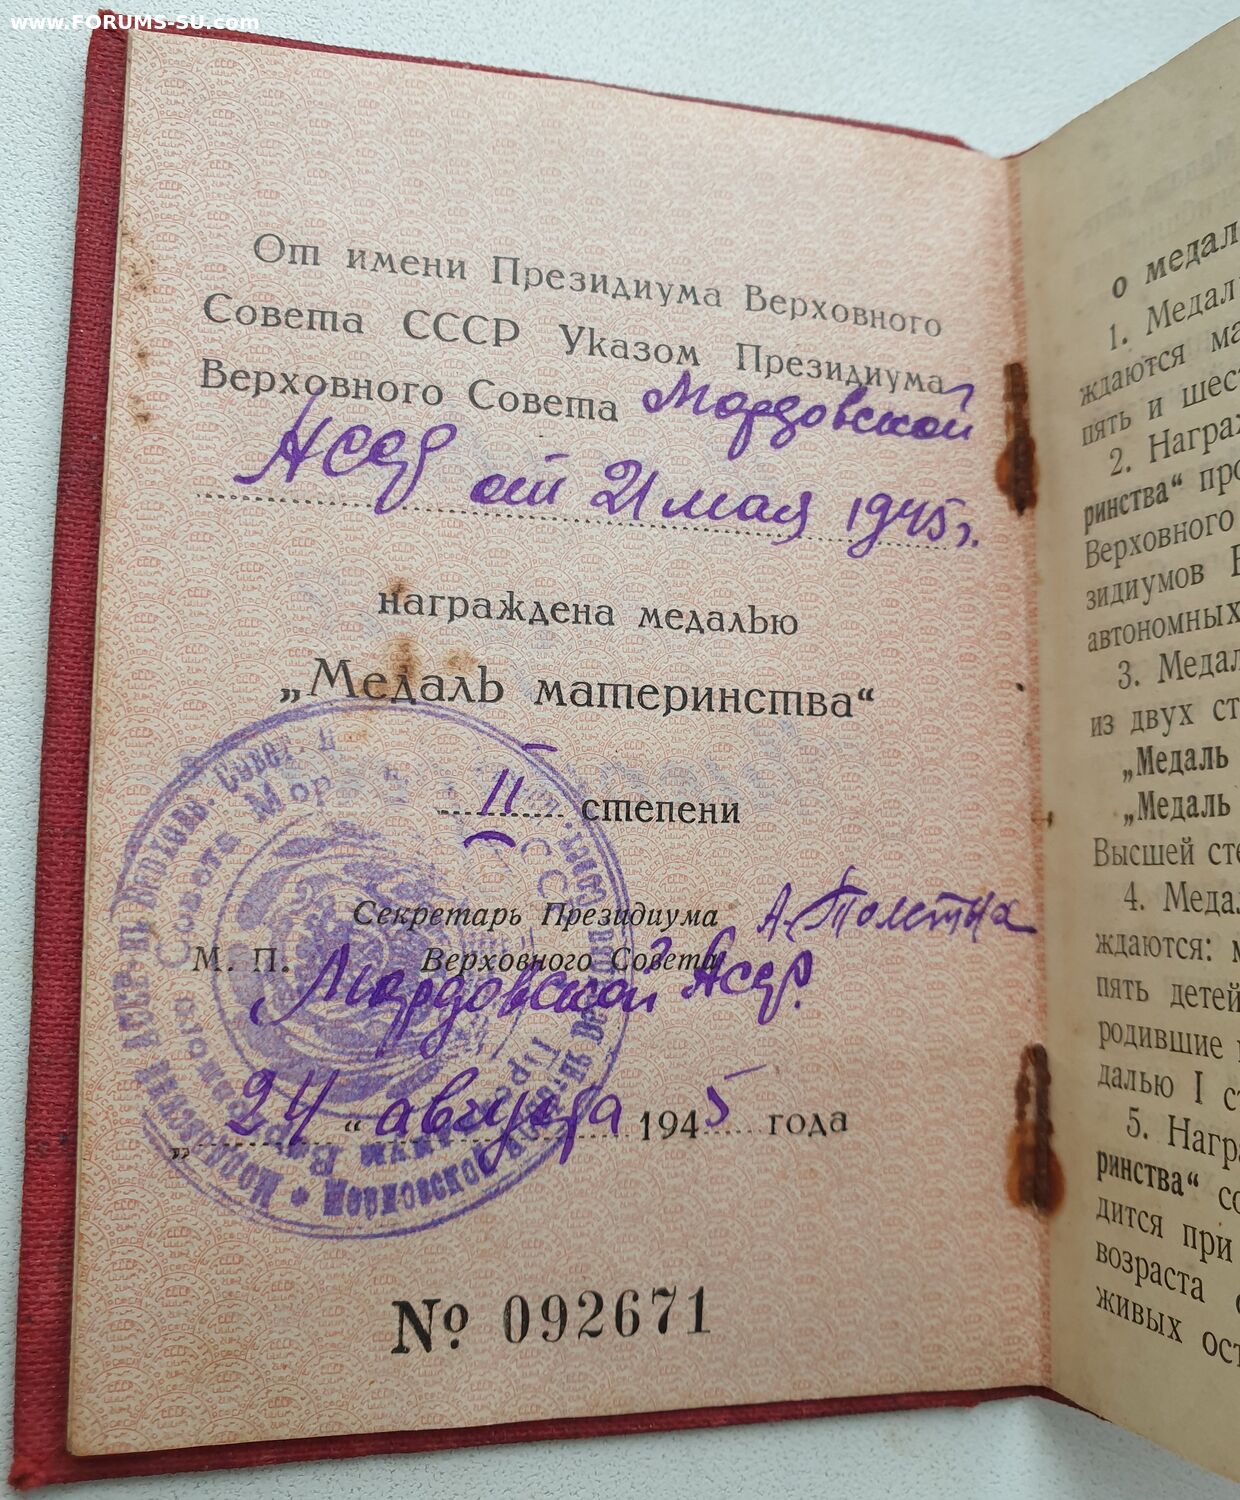 www.FORUMS-SU.com
От имени Президиума Верховного
Совета СССР Указом Президиума
Верховного Совета Мордовской
АССР от 21 мая 1945 г.
награждена медалью
„Медаль материнства“
II степени
Секретарь Президиума
М. П. Верховного Совета
Мордовской АССР.
„24“ августа 1945 года
№ 092671
о медал
1. Медал
ждаются ма
пять и шест
2. Награж
ринства“ про
Верховного
зидиумов В
автономных
3. Медал
из двух ст
„Медаль
„Медаль
Высшей сте
4. Меда
ждаются: м
пять детей
родившие
далью I с
5. Награ
ринства“ со
дится при
возраста
живых ост